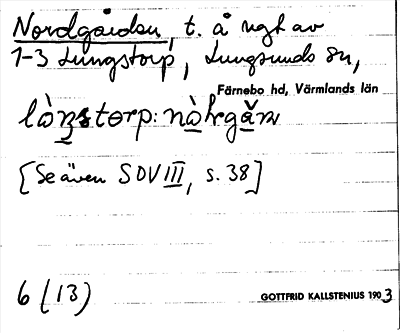 Nordgården, t. å ngt av
1-3 Lungstorp, Lungsunds sn,
Färnebo hd, Värmlands län
[Se även SOV III, s. 38]
6 (13)
GOTTFRID KALLSTENIUS 1903